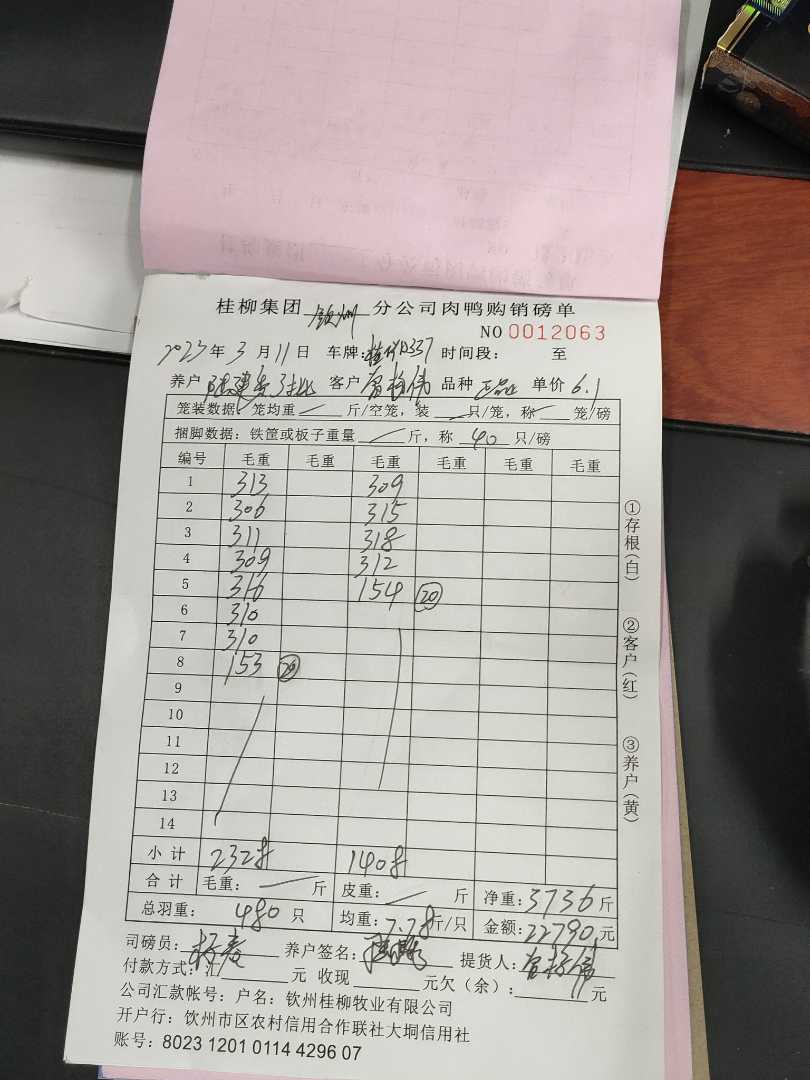 桂柳集团 钦州 分公司肉鸭购销磅单
NO 0012063
2023年 3 月 11 日 车牌: 337 时间段: 至
养户 客户 伟 品种 正品 单价 6.1
笼装数据: 笼均重 斤/空笼, 装 只/笼, 称 笼/磅
捆脚数据: 铁筐或板子重量 斤, 称 40 只/磅
编号 毛重 毛重 毛重 毛重 毛重 毛重
1 313 309
2 306 315
3 311 318
4 309 312
5 316 154 20
6 310
7 310
8 153 20
9
10
11
12
13
14
小计 232 140
合计 毛重: 斤 皮重: 斤 净重: 3736 斤
总羽重: 480 只 均重: 7.78 斤/只 金额: 22790 元
司磅员: 养户签名: 提货人:
付款方式: 汇 元 收现 元欠(余): 元
公司汇款帐号: 户名: 钦州桂柳牧业有限公司
开户行: 钦州市区农村信用合作联社大垌信用社
账号: 8023 1201 0114 4296 07
①存根(白)
②客户(红)
③养户(黄)